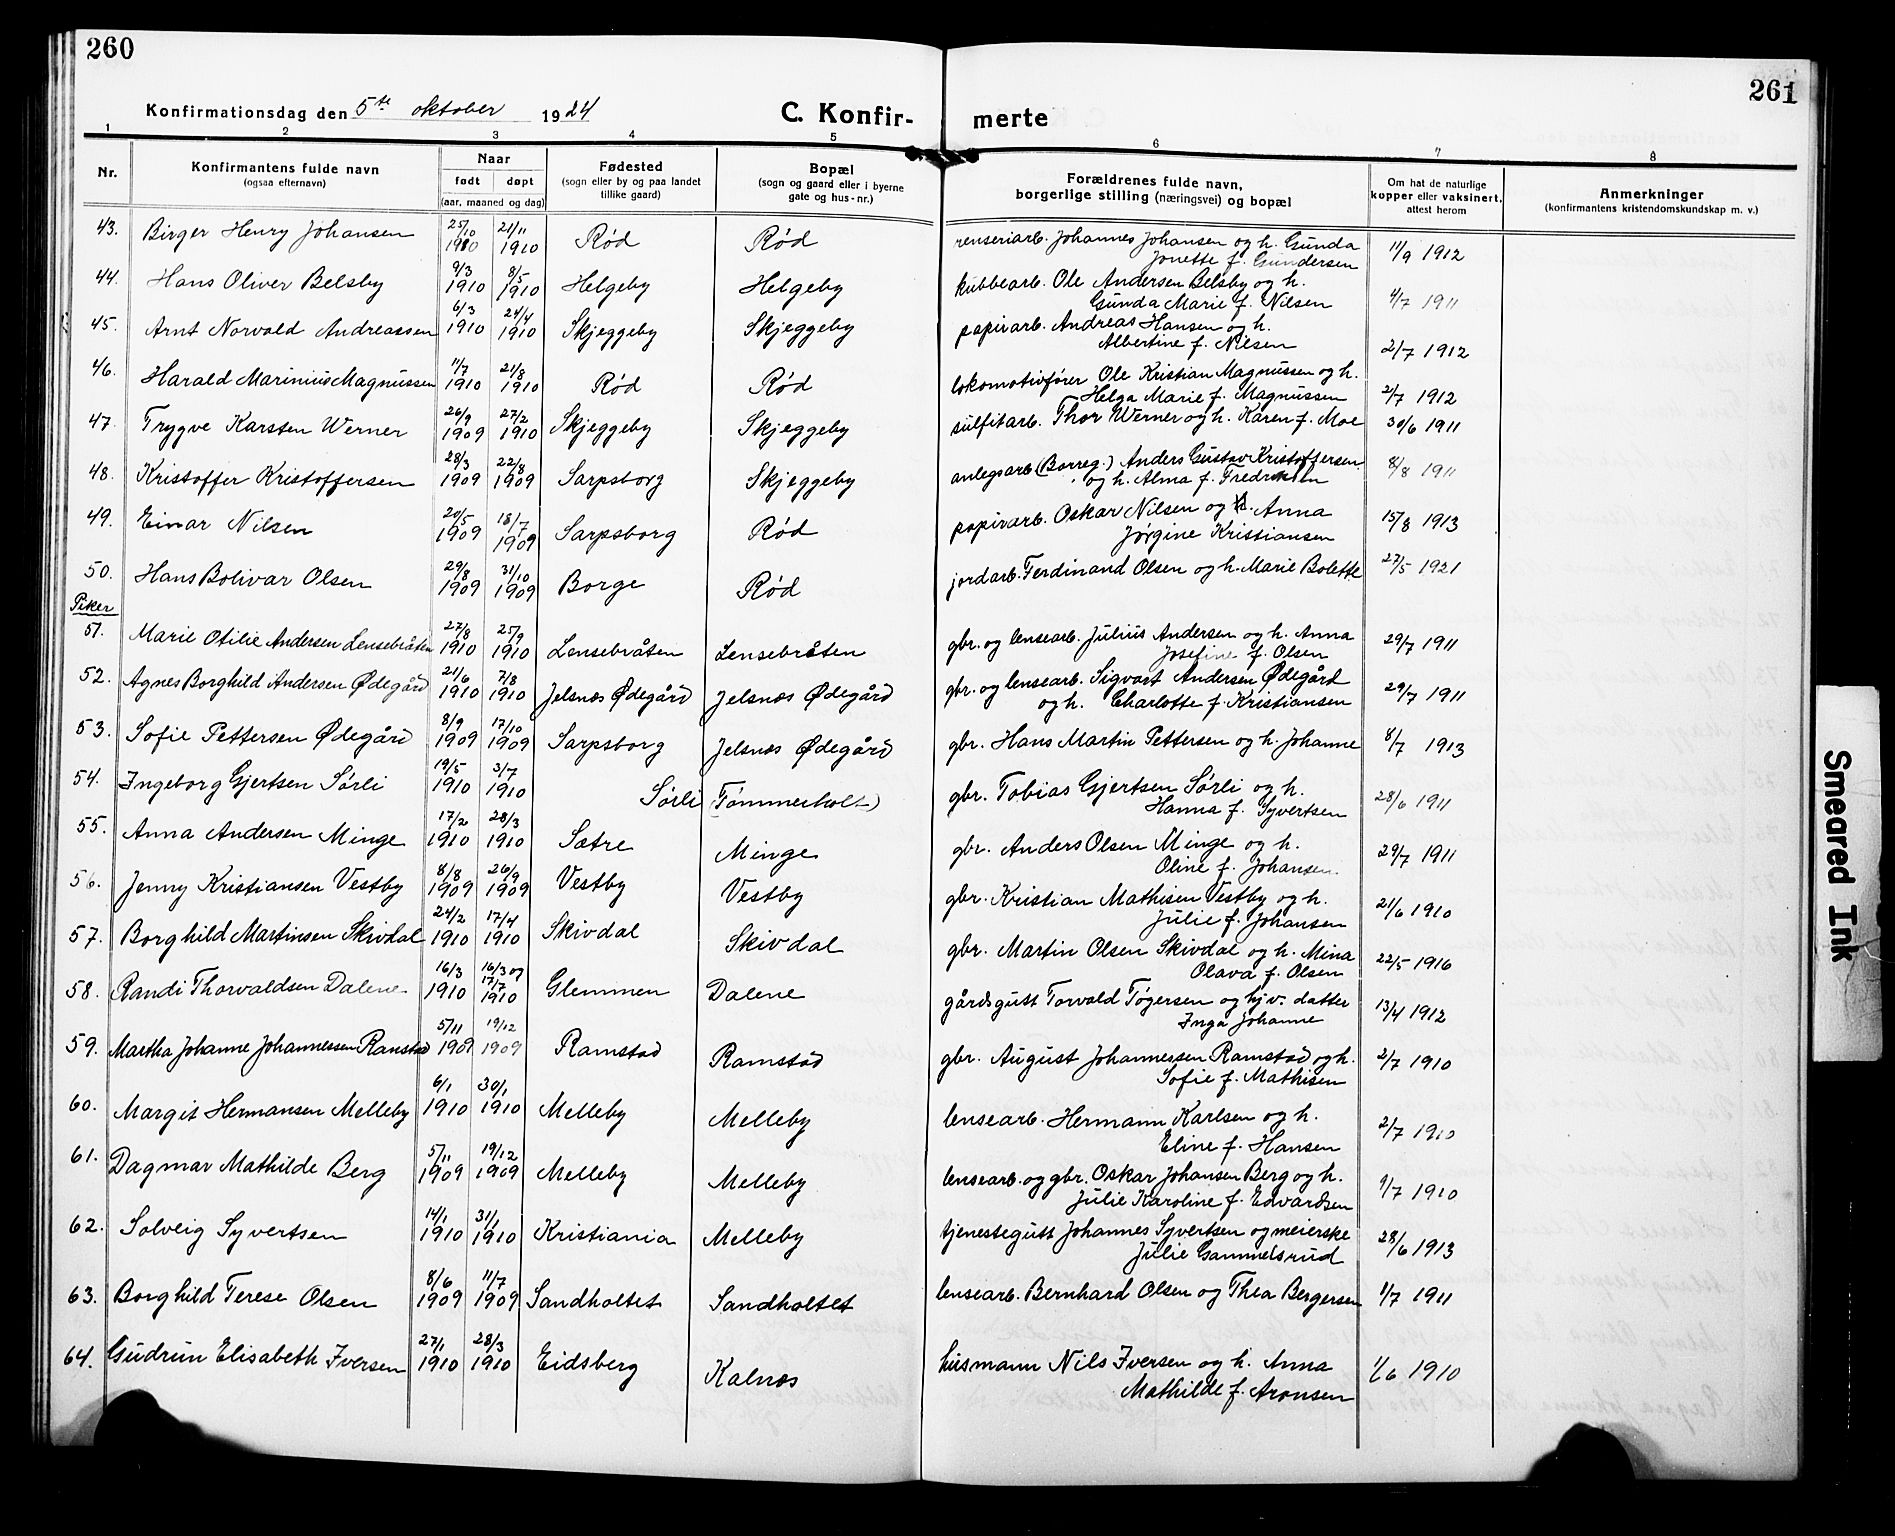 260
261
Konfirmationsdag den 5te oktober 1924
C. Konfir- merte
1 2 3 4 5 6 7 8
Nr.
Konfirmantens fulde navn
(ogsaa efternavn)
Naar
født døpt
(aar, maaned og dag)
Fødested
(sogn eller by og paa landet
tillike gaard)
Bopæl
(sogn og gaard eller i byerne
gate og hus-nr.)
Forældrenes fulde navn,
borgerlige stilling (næringsvei) og bopæl
Om hat de naturlige
kopper eller vaksinert,
attest herom
Anmerkninger
(konfirmantens kristendomskundskap m. v.)
43. Birger Henry Johansen 25/10 1910 21/11 1910 Rød Rød renseriarb. Johannes Johansen og h. Gunda 11/9 1912
Jonette f. Gundersen
44. Hans Oliver Belsby 9/3 1910 8/5 1910 Helgeby Helgeby kubbearb. Ole Andersen Belsby og h.
Gunda Marie f. Nilsen 4/7 1911
45. Arnt Norvald Andreassen 6/3 1910 24/4 1910 Skjeggeby Skjeggeby papirarb. Andreas Hansen og h.
Albertine f. Nilsen 2/7 1912
46. Harald Marinius Magnussen 11/7 1910 21/8 1910 Rød Rød lokomotivfører Ole Kristian Magnussen og h.
Helga Marie f. Magnussen 2/7 1912
47. Trygve Karsten Werner 26/9 1909 27/2 1910 Skjeggeby Skjeggeby sulfitarb. Thor Werner og h. Karen f. Moe 30/6 1911
48. Kristoffer Kristoffersen 28/3 1909 22/8 1909 Sarpsborg Skjeggeby anlegsarb. (Borreg.) Anders Gustav Kristoffersen 8/8 1911
og h. Alma f. Fredriksen
49. Einar Nilsen 20/5 1909 18/7 1909 Sarpsborg Rød papirarb. Oskar Nilsen og h. Anna 15/8 1913
Jørgine Kristiansen
50. Hans Bolivar Olsen 29/8 1909 31/10 1909 Borge Rød jordarb. Ferdinand Olsen og h. Marie Bolette 27/5 1921
Piker
51. Marie Otilie Andersen Lensebråten 27/8 1910 25/9 1910 Lensebråten Lensebråten gbr. og lensearb. Julius Andersen og h. Anna 29/7 1911
Josefine f. Olsen
52. Agnes Borghild Andersen Ødegård 21/6 1910 7/8 1910 Jelsnæs Ødegård Jelsnæs Ødegård gbr. og lensearb. Sigvart Andersen Ødegård 29/7 1911
og h. Charlotte f. Kristiansen
53. Sofie Pettersen Ødegård 8/9 1909 17/10 1909 Sarpsborg Jelsnæs Ødegård gbr. Hans Martin Pettersen og h. Johanne 8/7 1913
54. Ingeborg Gjertsen Sørli 19/5 1910 3/7 1910 Sørli (Tømmerholt) gbr. Tobias Gjertsen Sørli og h. 28/6 1911
Hanna f. Syvertsen
55. Anna Andersen Minge 17/2 1910 28/3 1910 Sætre Minge gbr. Anders Olsen Minge og h. 29/7 1911
Oline f. Johansen
56. Jenny Kristiansen Vestby 8/8 1909 26/9 1909 Vestby Vestby gbr. Kristian Mathisen Vestby og h. 21/6 1910
Julie f. Johansen
57. Borghild Martinsen Skivdal 24/2 1910 17/4 1910 Skivdal Skivdal gbr. Martin Olsen Skivdal og h. Mina 22/5 1916
Olava f. Olsen
58. Randi Thorvaldsen Dalene 16/3 1910 16/3 og 17/7 1910 Glemmen Dalene gårdsgutt Torvald Tøgersen og hjv. datter 13/4 1912
Inga Johanne
59. Martha Johanne Johannessen Ramstad 5/11 1909 19/12 1909 Ramstad Ramstad gbr. August Johannessen Ramstad og h. 2/7 1910
Sofie f. Mathisen
60. Margit Hermansen Melleby 6/1 1910 30/1 1910 Melleby Melleby lensearb. Hermann Karlsen og h. 2/7 1910
Eline f. Hansen
61. Dagmar Mathilde Berg 5/11 1909 19/12 1909 Melleby Melleby lensearb. og gbr. Oskar Johansen Berg og h. 9/7 1910
Julie Karoline f. Edvardsen
62. Solveig Syvertsen 14/1 1910 31/1 1910 Kristiania Melleby tjenestegutt Johannes Syvertsen og meierske 28/6 1913
Julie Gammelsrud
63. Borghild Terese Olsen 8/6 1909 11/7 1909 Sandholtet Sandholtet lensearb. Bernhard Olsen og Thea Bergersen 1/7 1911
64. Gudrun Elisabeth Iversen 27/1 1910 28/3 1910 Eidsberg Kalnæs husmann Nils Iversen og h. Anna 1/6 1910
Mathilde f. Aronsen
Smeared Ink